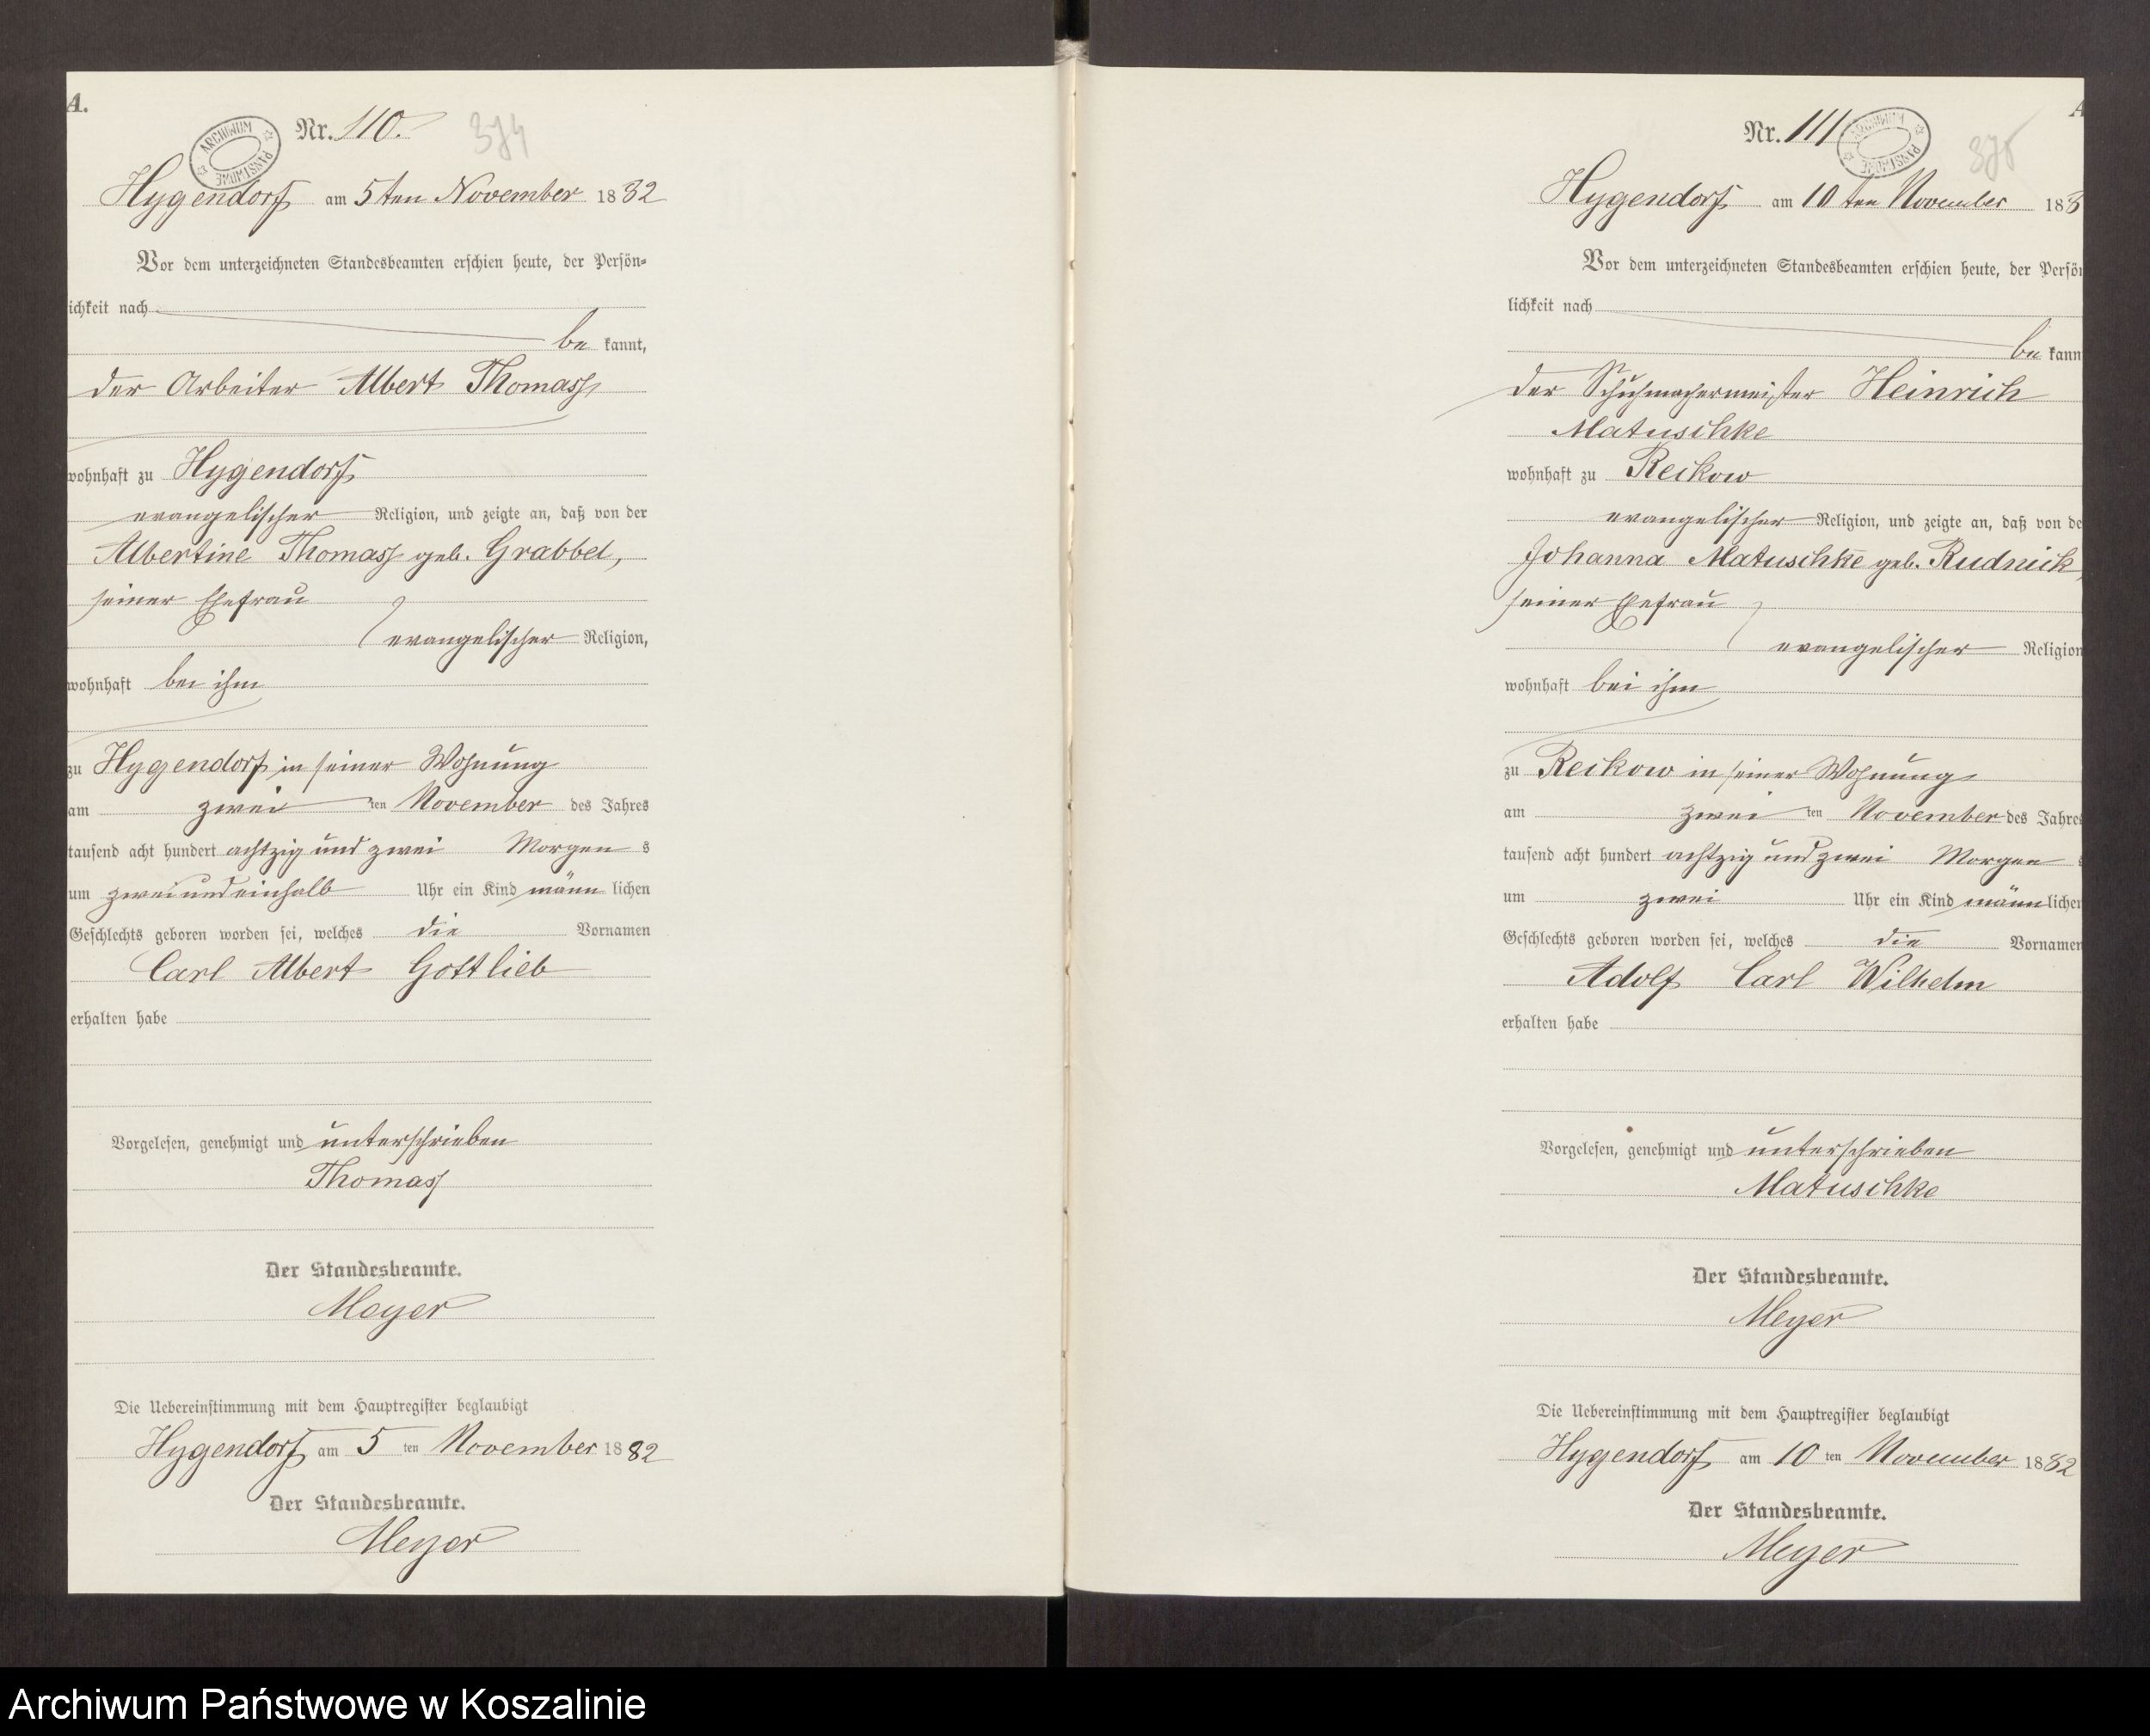 A.
Nr. 110.
374
ARCHIWUM PAŃSTWOWE
Hygendorf am 5ten November 1882
Vor dem unterzeichneten Standesbeamten erschien heute, der Persön-
lichkeit nach
be kannt,
der Arbeiter Albert Thomass
wohnhaft zu Hygendorf
evangelischer Religion, und zeigte an, daß von der
Albertine Thomass geb. Grabbel,
seiner Ehefrau
evangelischer Religion,
wohnhaft bei ihm
zu Hygendorf in seiner Wohnung
am zwei ten November des Jahres
tausend acht hundert achtzig und zwei Morgen s
um zwei und einhalb Uhr ein Kind männ lichen
Geschlechts geboren worden sei, welches die Vornamen
Carl Albert Gottlieb
erhalten habe
Vorgelesen, genehmigt und unterschrieben
Thomass
Der Standesbeamte.
Meyer
Die Uebereinstimmung mit dem Hauptregister beglaubigt
Hygendorf am 5 ten November 1882
Der Standesbeamte.
Meyer
A
Nr. 111
375
ARCHIWUM PAŃSTWOWE
Hygendorf am 10 ten November 188
Vor dem unterzeichneten Standesbeamten erschien heute, der Persön
lichkeit nach
be kann
der Schuhmachermeister Heinrich
Matuschke
wohnhaft zu Reikow
evangelischer Religion, und zeigte an, daß von de
Johanna Matuschke geb. Rudnick,
seiner Ehefrau
evangelischer Religion
wohnhaft bei ihm
zu Reikow in seiner Wohnung
am zwei ten November des Jahres
tausend acht hundert achtzig und zwei Morgen s
um zwei Uhr ein Kind männ lichen
Geschlechts geboren worden sei, welches die Vornamen
Adolf Carl Wilhelm
erhalten habe
Vorgelesen, genehmigt und unterschrieben
Matuschke
Der Standesbeamte.
Meyer
Die Uebereinstimmung mit dem Hauptregister beglaubigt
Hygendorf am 10 ten November 1882
Der Standesbeamte.
Meyer
Archiwum Państwowe w Koszalinie